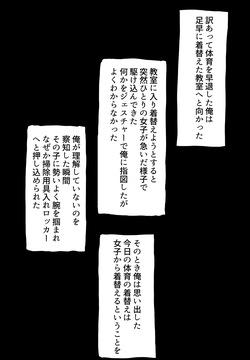 訳あって体育を早退した俺は
足早に着替えた教室へと向かった
教室に入り着替えようとすると
突然ひとりの女子が急いだ様子で
駆け込んできた
何かをジェスチャーで俺に指図したが
よくわからなかった
俺が理解していないのを
察知した瞬間
その子に勢いよく腕を掴まれ
なぜか掃除用具入れロッカー
へと押し込められた
そのとき俺は思い出した
今日の体育の着替えは
女子から着替えるということを